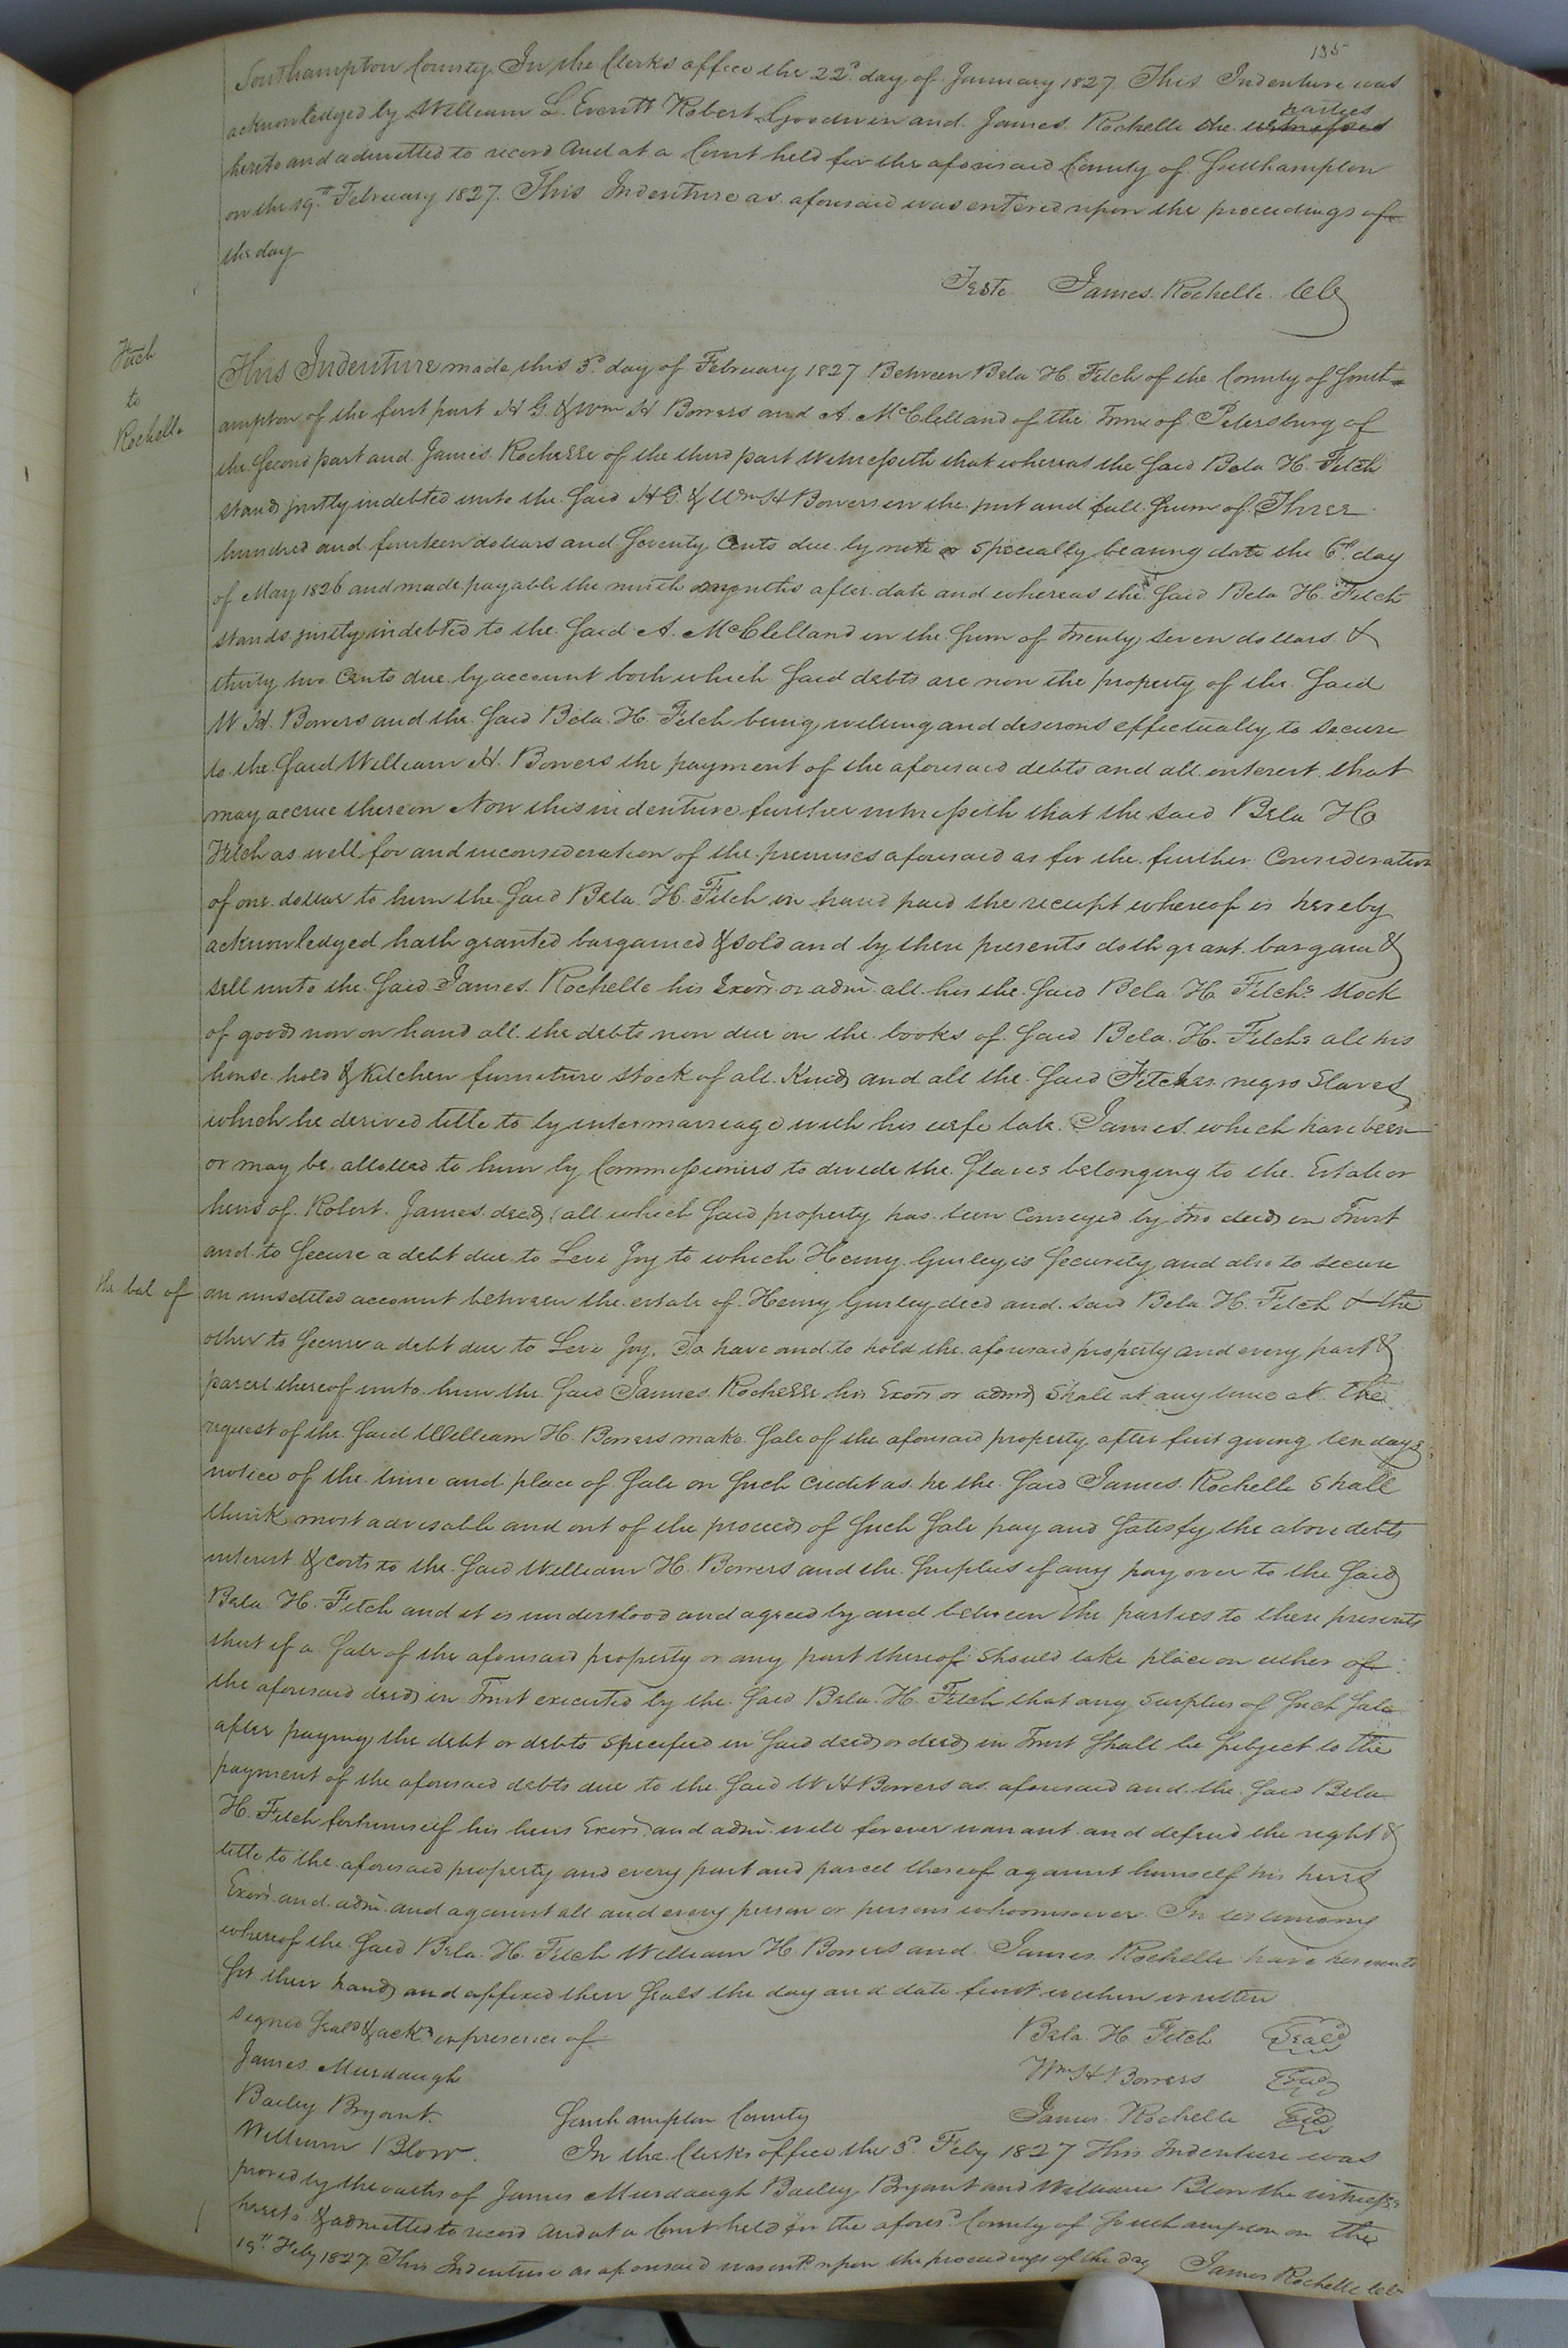 135
Southampton County. In the Clerks office the 22d day of January 1827. This Indenture was
acknowledged by William L. Everitt Robert Goodwin and James Rochelle the witnesses parties
hereto and admitted to record And at a Court held for the aforesaid County of Southampton
on the 19th February 1827. This Indenture as aforesaid was entered upon the proceedings of
the day
Teste James Rochelle Clk
Fitch
to
Rochelle
This Indenture made this 3d day of February 1827 Between Bela H. Fitch of the County of South-
ampton of the first part H G. & Wm H Bowers and A. McClelland of the Town of Petersburg of
the Second part and James Rochelle of the third part Witnesseth that whereas the Said Bela H. Fitch
stands justly indebted unto the Said H G. & Wm H Bowers in the just and full Sum of Three
hundred and fourteen dollars and Seventy Cents due by note or specially bearing date the 6th day
of May 1826 and made payable the months after date and whereas the Said Bela H. Fitch
stands justly indebted to the Said A. McClelland in the Sum of Twenty Seven dollars &
thirty two Cents due by account both which Said debts are now the property of the Said
W H. Bowers and the Said Bela H. Fitch being willing and desirous effectually to secure
to the Said William H. Bowers the payment of the aforesaid debts and all interest that
may accrue thereon Now this indenture further witnesseth that the said Bela H
Fitch as well for and in consideration of the premises aforesaid as for the further Consideration
of one dollar to him the Said Bela H. Fitch in hand paid the receipt whereof is hereby
acknowledged hath granted bargained & sold and by these presents doth grant bargain &
sell unto the Said James Rochelle his Exors or adms all his the Said Bela H. Fitch's stock
of goods now on hand all the debts now due on the books of Said Bela H. Fitch's all his
house hold & Kitchen furniture stock of all Kinds and all the Said Fitches negro Slaves
which he derived title to by intermarriage with his wife late James which have been
or may be allotted to him by Commissioners to divide the Slaves belonging to the Estate or
heirs of Robert James decd, all which Said property has been Conveyed by two deeds in Trust
and to Secure a debt due to Levi Joy to which Henry Gurley is Security and also to secure
the bal of
an unsettled account between the estate of Henry Gurley decd and said Bela H. Fitch & the
other to Secure a debt due to Levi Joy, To have and to hold the aforesaid property and every part &
parcel thereof unto him the Said James Rochelle his Exors or adms Shall at any time at the
request of the Said William H. Bowers make Sale of the aforesaid property after first giving ten days
notice of the time and place of Sale on Such Credit as he the Said James Rochelle Shall
think most advisable and out of the proceeds of Such Sale pay and Satisfy the above debts
interest & costs to the Said William H. Bowers and the Surplus if any pay over to the Said
Bela H. Fitch and it is understood and agreed by and between the parties to these presents
that if a Sale of the aforesaid property or any part thereof Should take place on either of
the aforesaid deeds in Trust executed by the Said Bela H. Fitch that any Surplus of Such Sale
after paying the debt or debts Specified in Said deed or deeds in Trust Shall be Subject to the
payment of the aforesaid debts due to the Said W H Bowers as aforesaid and the Said Bela
H. Fitch for himself his heirs Exors and adms will forever warrant and defend the right &
title to the aforesaid property and every part and parcel thereof against himself his heirs
Exors and adms and against all and every person or persons whomsoever In testimony
whereof the Said Bela H. Fitch William H. Bowers and James Rochelle have hereunto
Set their hands and affixed their Seals the day and date first written
Signed Seald & ackd in presence of
Bela H Fitch Seal
James Murdaugh
Wm H Bowers Seal
Bailey Bryant
Southampton County
James Rochelle Seal
William Blow.
In the Clerks office the 3d Feby 1827 This Indenture was
proved by the oaths of James Murdaugh Bailey Bryant and William Blow the witnesses
hereto & admitted to record And at a Court held for the aforesd County of Southampton on the
19th Feby 1827. This Indenture as aforesaid was entd upon the proceedings of the day James Rochelle Clk